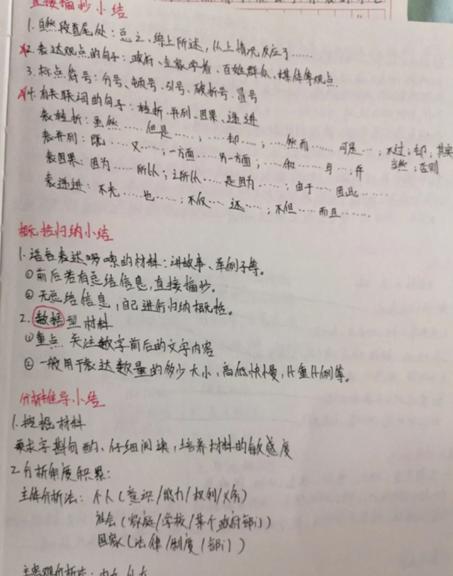 直接摘抄小结
1.自然段首尾处：总之、综上所述，从上情况反应了……
*2.表达观点的句子：政府、专家学者、百姓群众、媒体等观点
3.标点符号：分号、顿号、引号、破折号、冒号
*4.有关联词的句子：转折、并列、因果、递进
表转折：虽然……但是……；……却……；……然而……可是…，不过；却，其实
当然；否则
表并列：既……又……；一方面……另一方面……；……和……与…并
表因果：因为……所以……；之所以……是因为……；由于……因此……
表递进：不光……也……；不仅……还……；不但……而且……
概括归纳小结
1.语言表达啰嗦的材料：讲故事、举例子等。
①前后若有总结信息，直接摘抄。
②无总结信息，自己进行归纳概括。
2.数据型材料
①重点关注数字前后的文字内容
②一般用于表达数量的多少大小，高低快慢，比重比例等。
分析推导小结
1.挖掘材料
要求字斟句酌、仔细阅读，培养材料的敏感度
2.分析角度积累：
主体分析法：个人（意识/能力/权利/义务）
社会（家庭/学校/某个政府部门）
国家（法律/制度/部门）